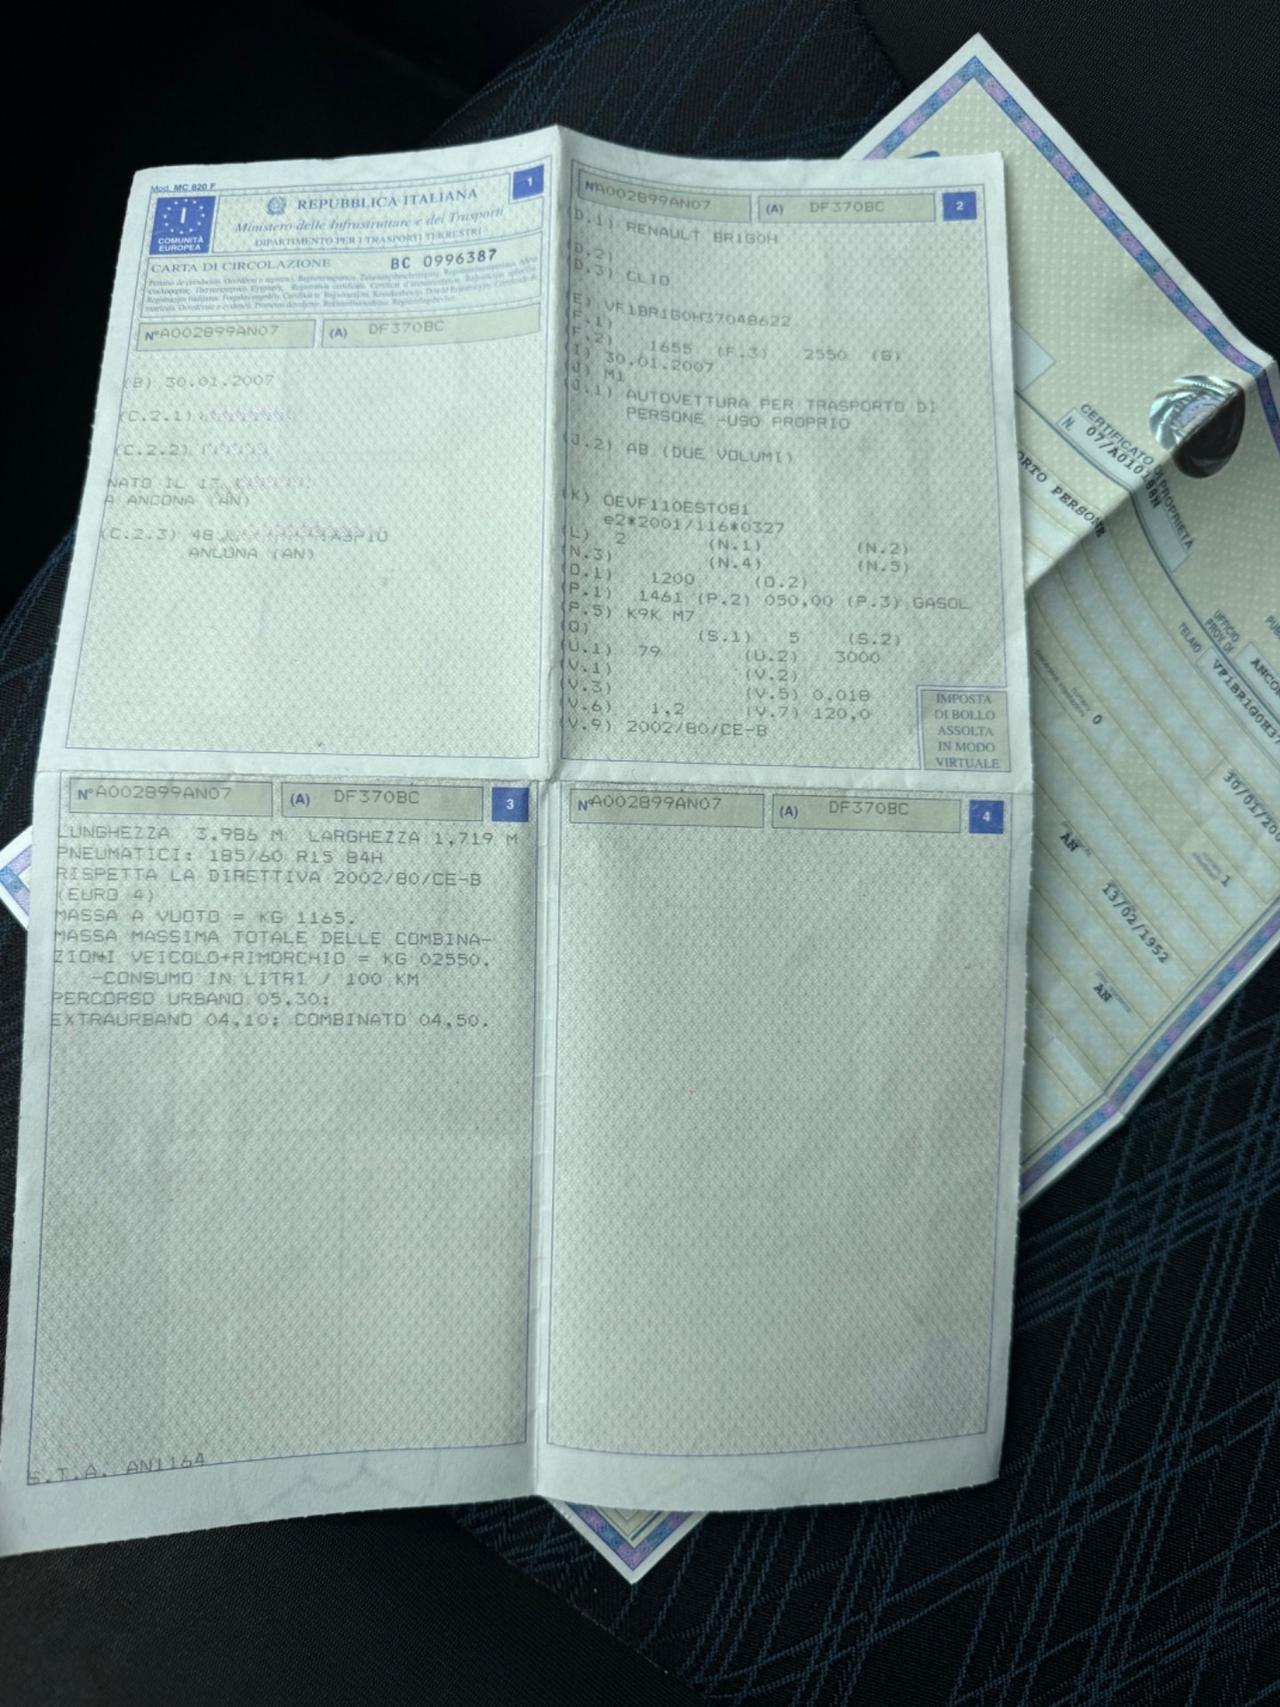 Mod. MC 820 F
1
REPUBBLICA ITALIANA
Ministero delle Infrastrutture e dei Trasporti
DIPARTIMENTO PER I TRASPORTI TERRESTRI
I
COMUNITÀ
EUROPEA
CARTA DI CIRCOLAZIONE BC 0996387
N° A002899AN07 (A) DF370BC
(B) 30.01.2007
(C.2.1)
(C.2.2)
NATO IL
A ANCONA (AN)
(C.2.3) 48
ANCONA (AN)
N° A002899AN07 (A) DF370BC 2
(D.1) RENAULT BR1G0H
(D.2)
(D.3) CLIO
(E) VF1BR1G0H37048622
(F.1)
(F.2) 1655 (F.3) 2550 (G)
(I) 30.01.2007
(J) M1
(J.1) AUTOVETTURA PER TRASPORTO DI
PERSONE -USO PROPRIO
(J.2) AB (DUE VOLUMI)
(K) OEVF110EST081
e2*2001/116*0327
(L) 2 (N.1) (N.2)
(N.3) (N.4) (N.5)
(O.1) 1200 (O.2)
(P.1) 1461 (P.2) 050,00 (P.3) GASOL
(P.5) K9K M7
(Q) (S.1) 5 (S.2)
(U.1) 79 (U.2) 3000
(V.1) (V.2)
(V.3) (V.5) 0,018
(V.6) 1,2 (V.7) 120,0
(V.9) 2002/80/CE-B
IMPOSTA
DI BOLLO
ASSOLTA
IN MODO
VIRTUALE
N° A002899AN07 (A) DF370BC 3
LUNGHEZZA 3,986 M LARGHEZZA 1,719 M
PNEUMATICI: 185/60 R15 84H
RISPETTA LA DIRETTIVA 2002/80/CE-B
(EURO 4)
MASSA A VUOTO = KG 1165.
MASSA MASSIMA TOTALE DELLE COMBINA-
ZIONI VEICOLO+RIMORCHIO = KG 02550.
-CONSUMO IN LITRI / 100 KM
PERCORSO URBANO 05,30;
EXTRAURBANO 04,10; COMBINATO 04,50.
S.T.A. AN1164
N° A002899AN07 (A) DF370BC 4
CERTIFICATO DI PROPRIETÀ
N. 07/A010188N
PERSONE
UFFICIO
PROV. DI
TELAIO
0
1
AN
13/02/1952
AN